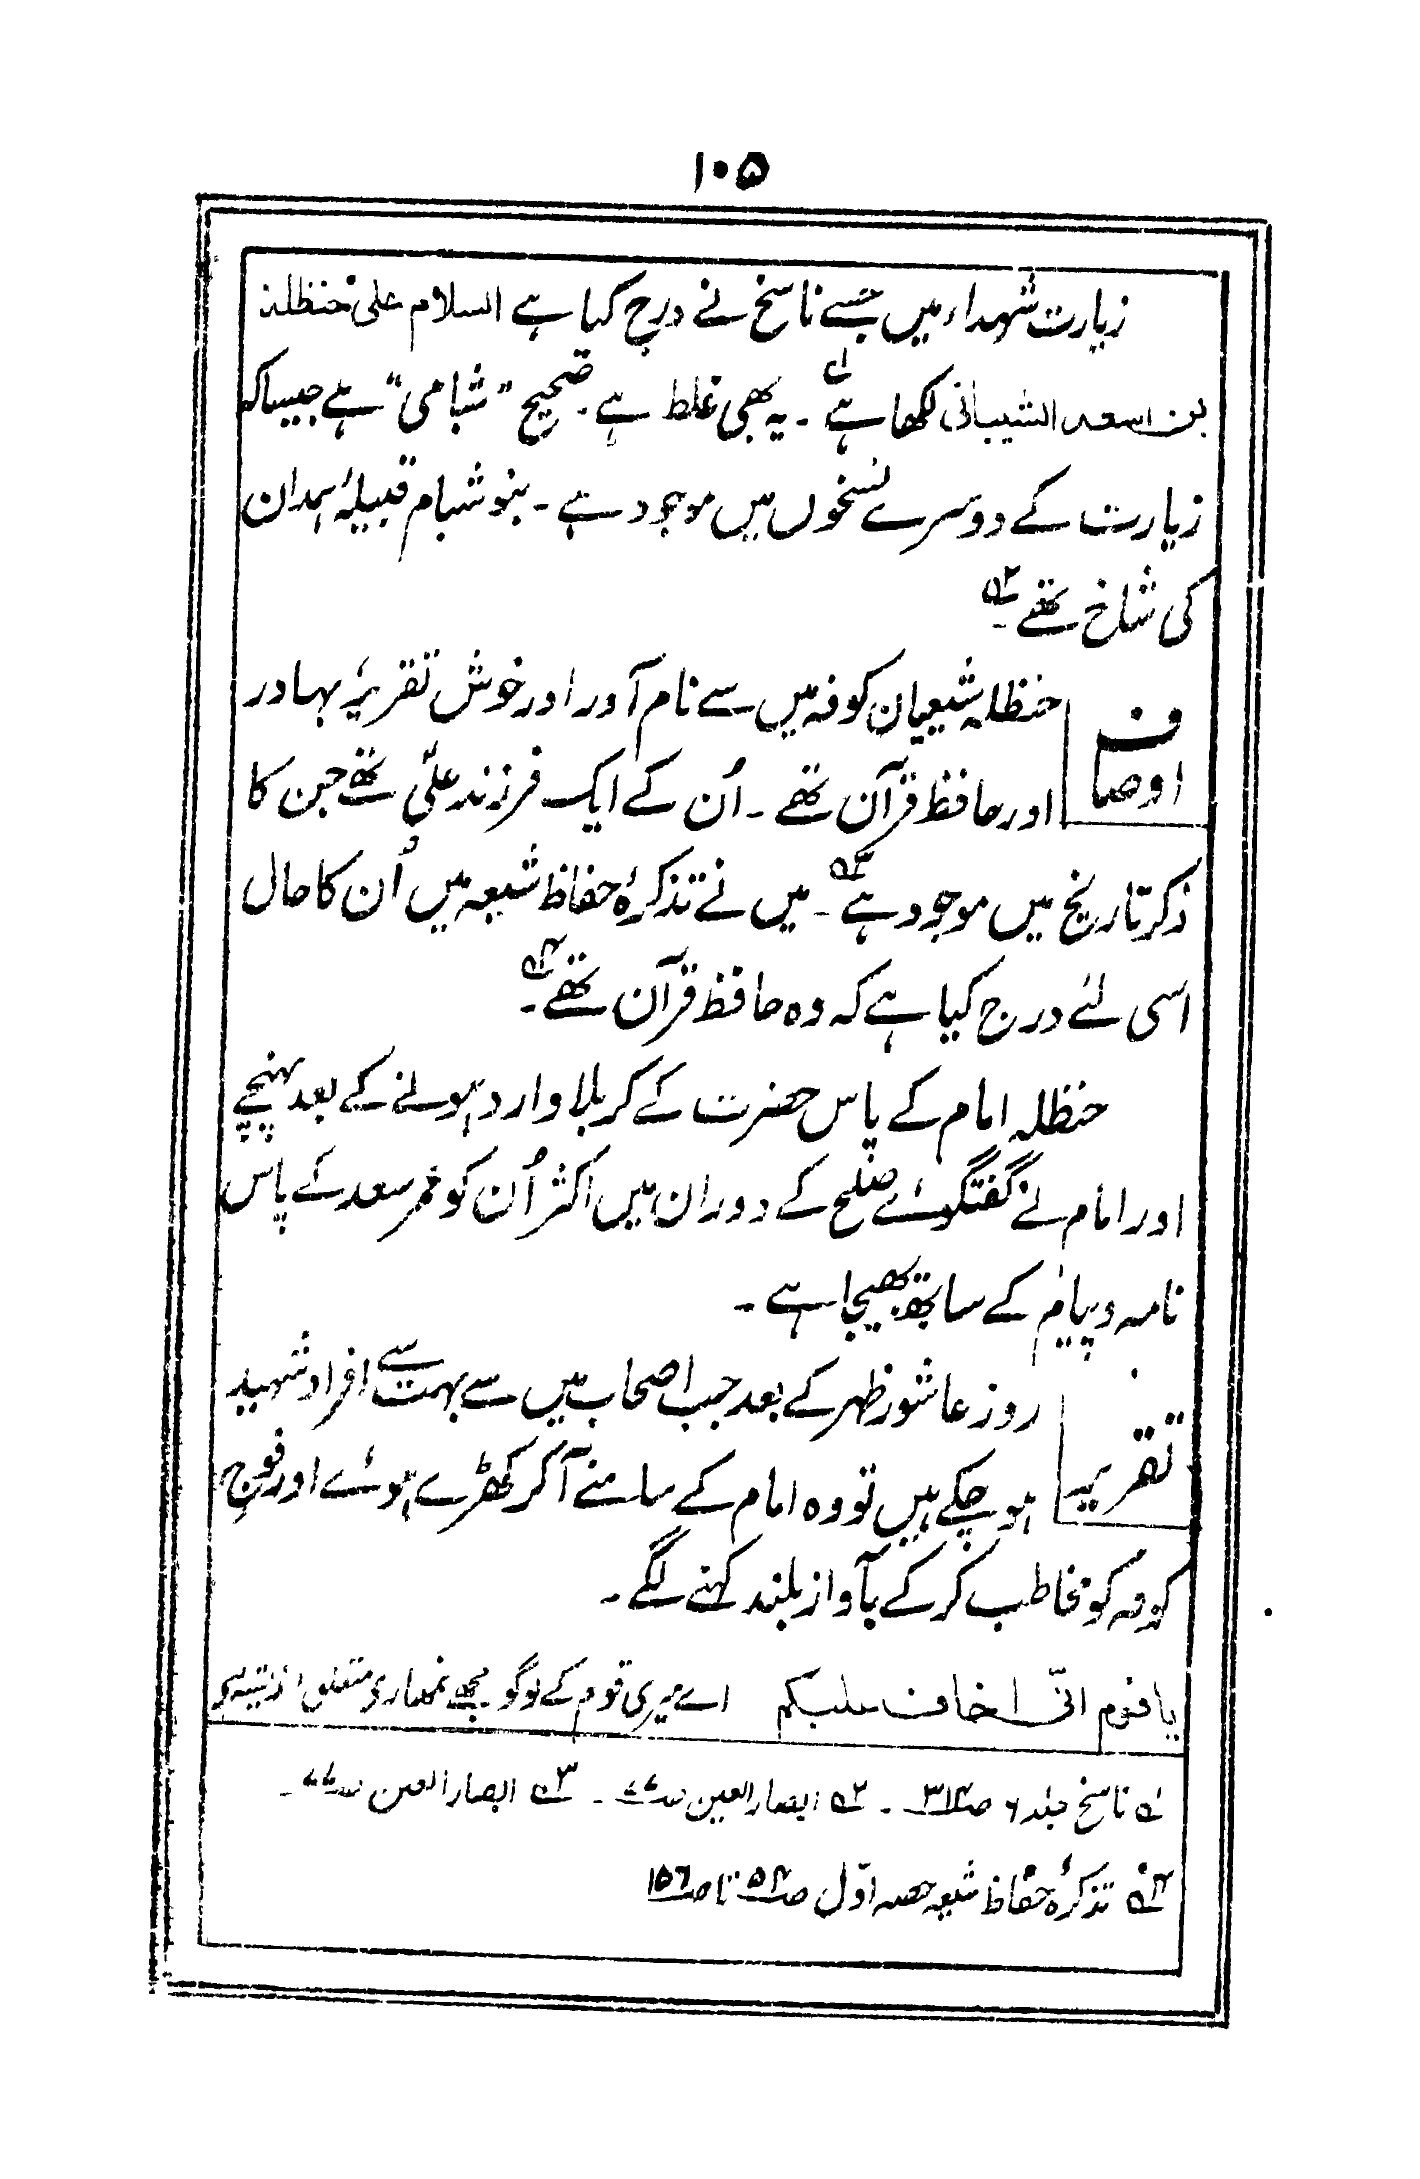 ۱۰۵
زیارت شہداء میں جسے ناسخ نے درج کیا ہے السلام علیٰ حنظلۃ
بن اسعد الشیبانی لکھا ہے۱؎ ۔ یہ بھی غلط ہے۔ صحیح "شبامی" ہے جیسا کہ
زیارت کے دوسرے نسخوں میں موجود ہے ۔ بنو شبام قبیلۂ ہمدان
کی شاخ تھے ۲؎ ۔
اوصاف
حنظلہ شیعیان کوفہ میں سے نام آور اور خوش تقریر، بہادر
اور حافظ قرآن تھے ۔ اُن کے ایک فرزند علی تھے جن کا
ذکر تاریخ میں موجود ہے ۳؎ ۔ میں نے تذکرۂ حفاظ شیعہ میں اُن کا حال
اسی لئے درج کیا ہے کہ وہ حافظ قرآن تھے ۴؎ ۔
حنظلہ امام کے پاس حضرت کے کربلا وارد ہونے کے بعد پہنچے
اور امام نے گفتگوئے صلح کے دوران میں اکثر اُن کو عمر سعد کے پاس
نامہ و پیام کے ساتھ بھیجا ہے ۔
تقریر
روز عاشور ظہر کے بعد جب اصحاب میں سے بہت سے افراد شہید
ہو چکے ہیں تو وہ امام کے سامنے آ کر کھڑے ہوئے اور فوجِ
کوفہ کو مخاطب کر کے بآواز بلند کہنے لگے ۔
یا قوم انّی اخاف علیکم اے میری قوم کے لوگو مجھے تمھارے متعلق اندیشہ ہے
۱؎ ناسخ جلد ۶ ص۳۱۴ ۔ ۲؎ ابصار العین ص۷۷ ۔ ۳؎ ابصار العین ص۷۷ ۔
۴؎ تذکرۂ حفاظ شیعہ حصہ اوّل ص۵۴ تا ص۱۵۶